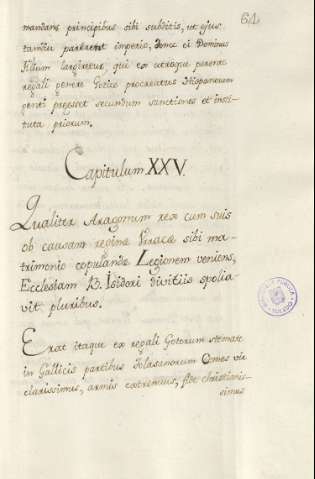 61
mandans principibus sibi subditis, ut ejus
tamdiu parerent imperio, donec ei Dominus
filium largiretur, qui ex utroque parente
regali genere Gotice procreatus Hispanorum
genti preesset secundum sanctiones et insti-
tuta priorum.
Capitulum XXV.
Qualiter Aragonum rex cum suis
ob causam reginæ Vrracæ sibi ma-
trimonio copulandæ Legionem veniens,
Ecclesiam B. Isidori divitiis spolia-
vit pluribus.
Erat itaque ex regali Gotorum stemate
in Gallicis partibus Tolosanorum Comes vir
clarissimus, armis extrenuus, fide christianis-
simus